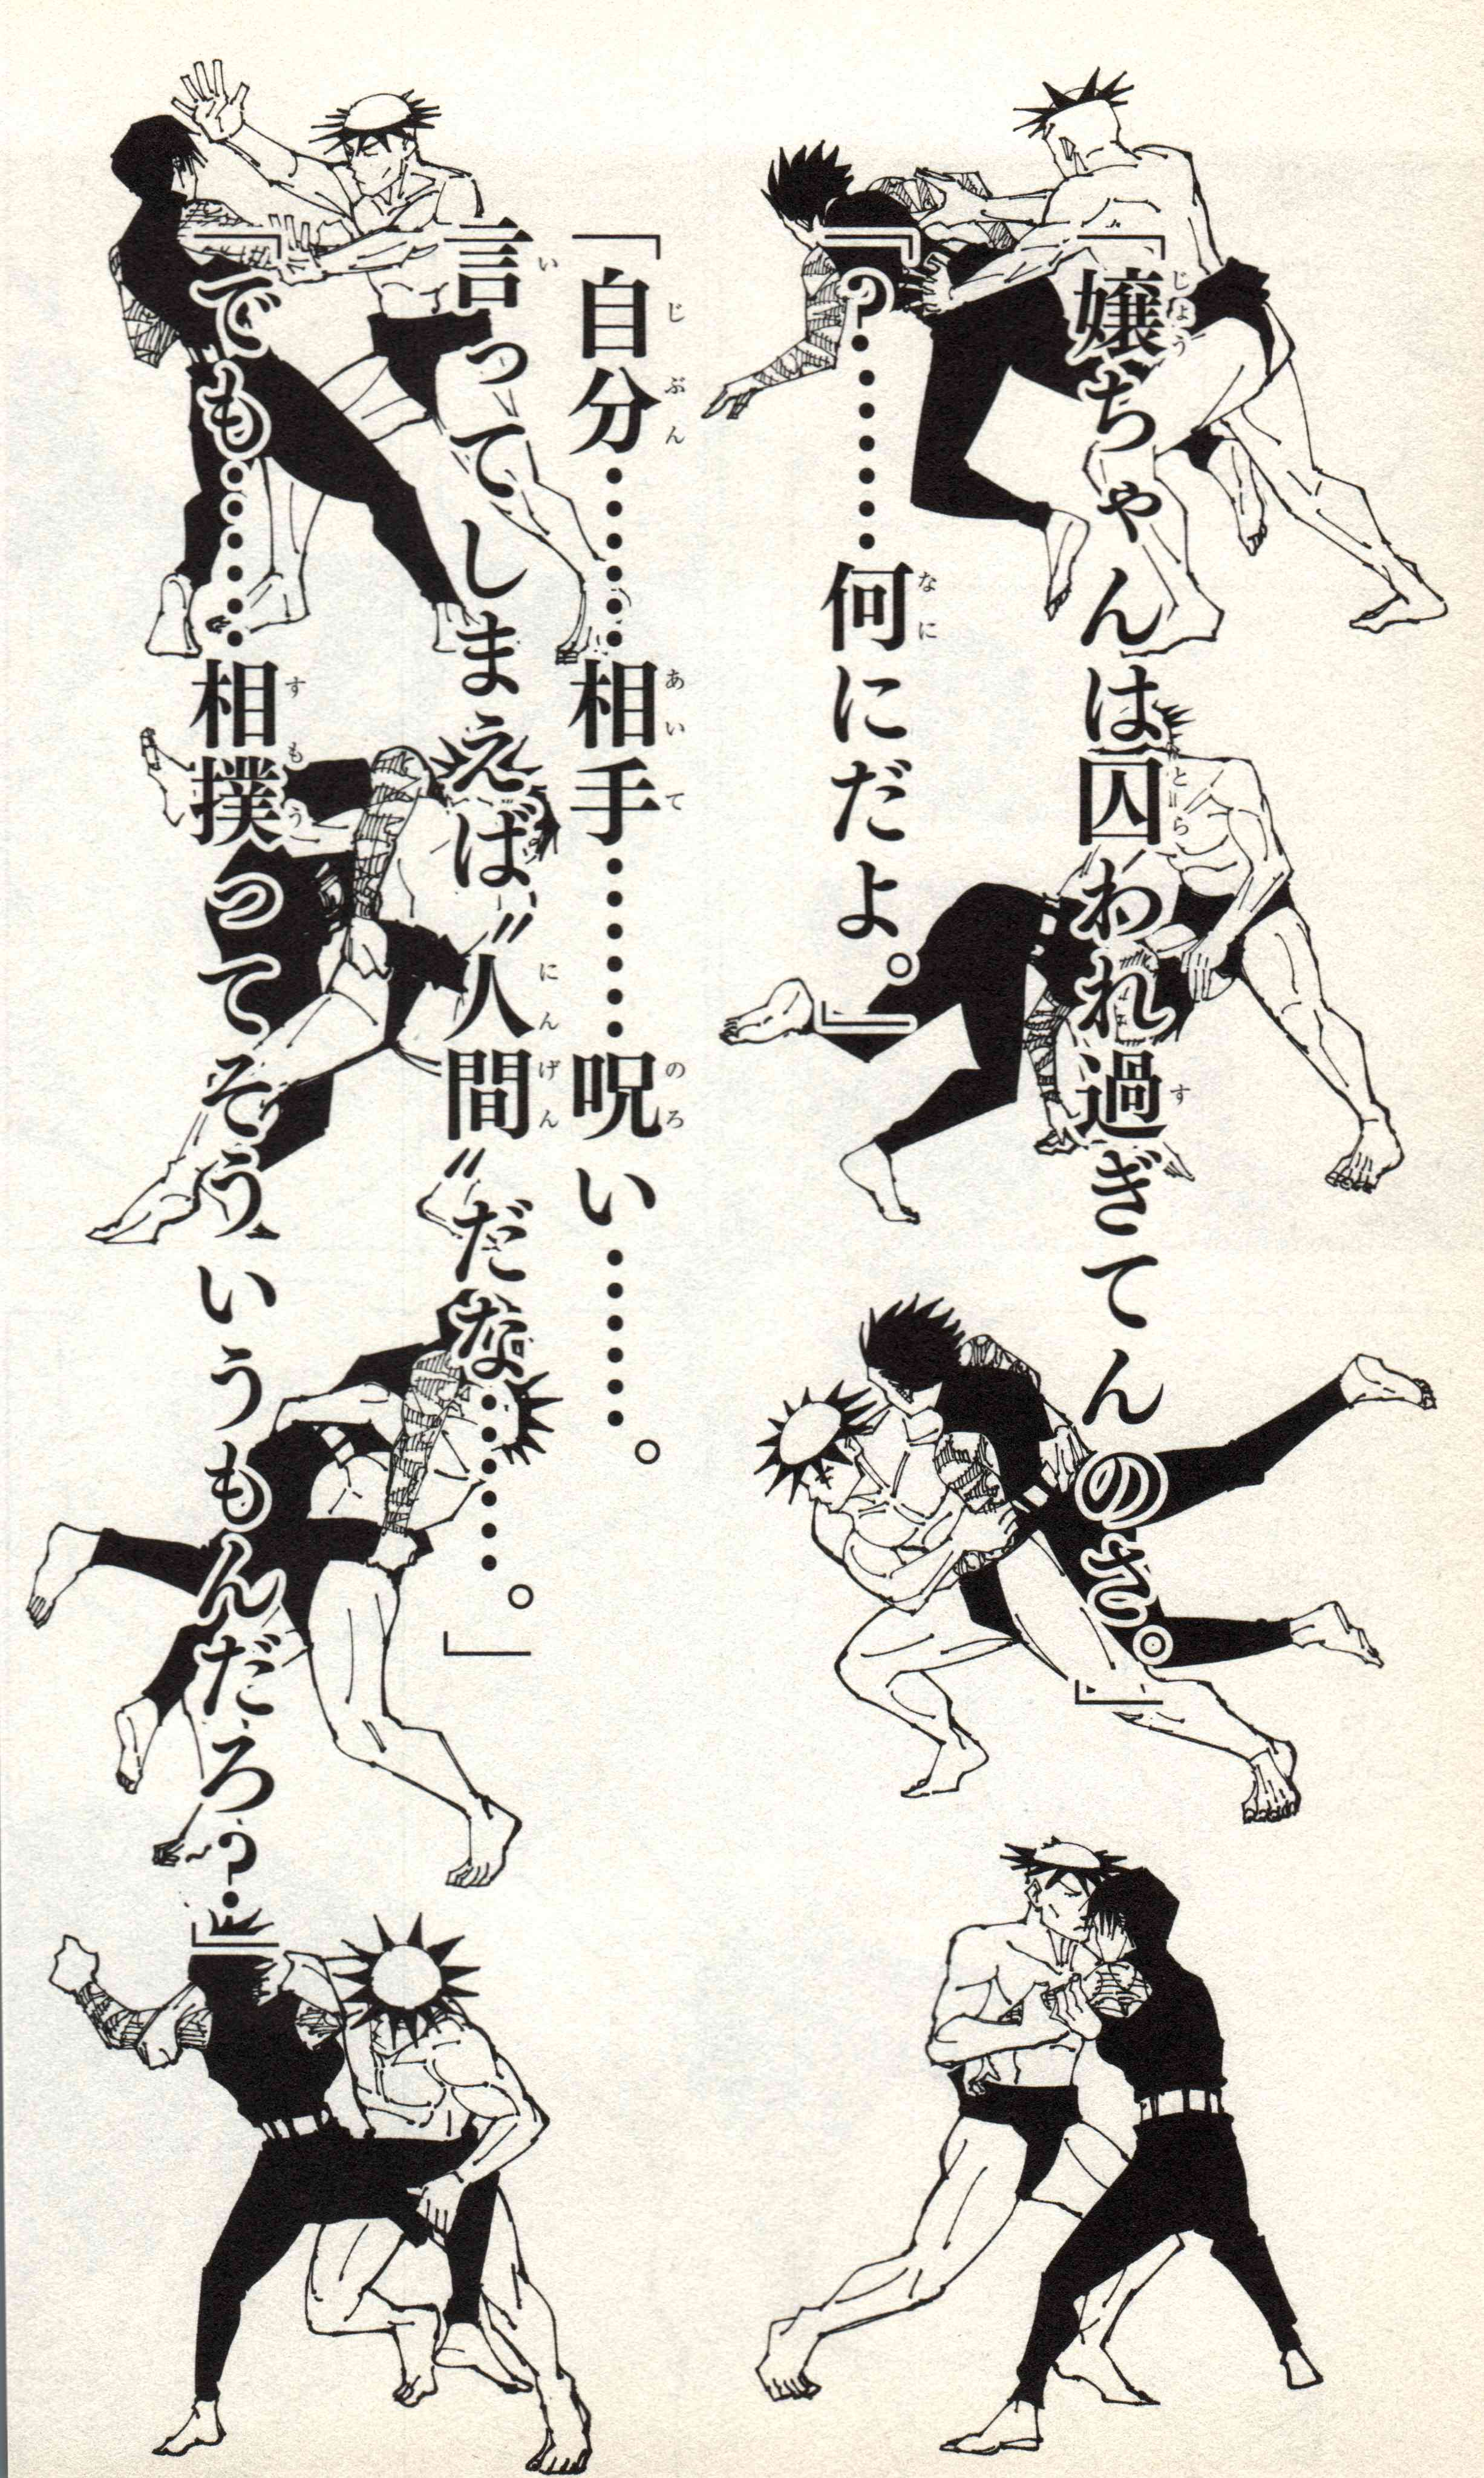 「嬢ちゃんは囚われ過ぎてんのさ。」
『?……何にだよ。』
「自分……相手……呪い……。
言ってしまえば〝人間〟だな……。」
『でも……相撲ってそういうもんだろ?』